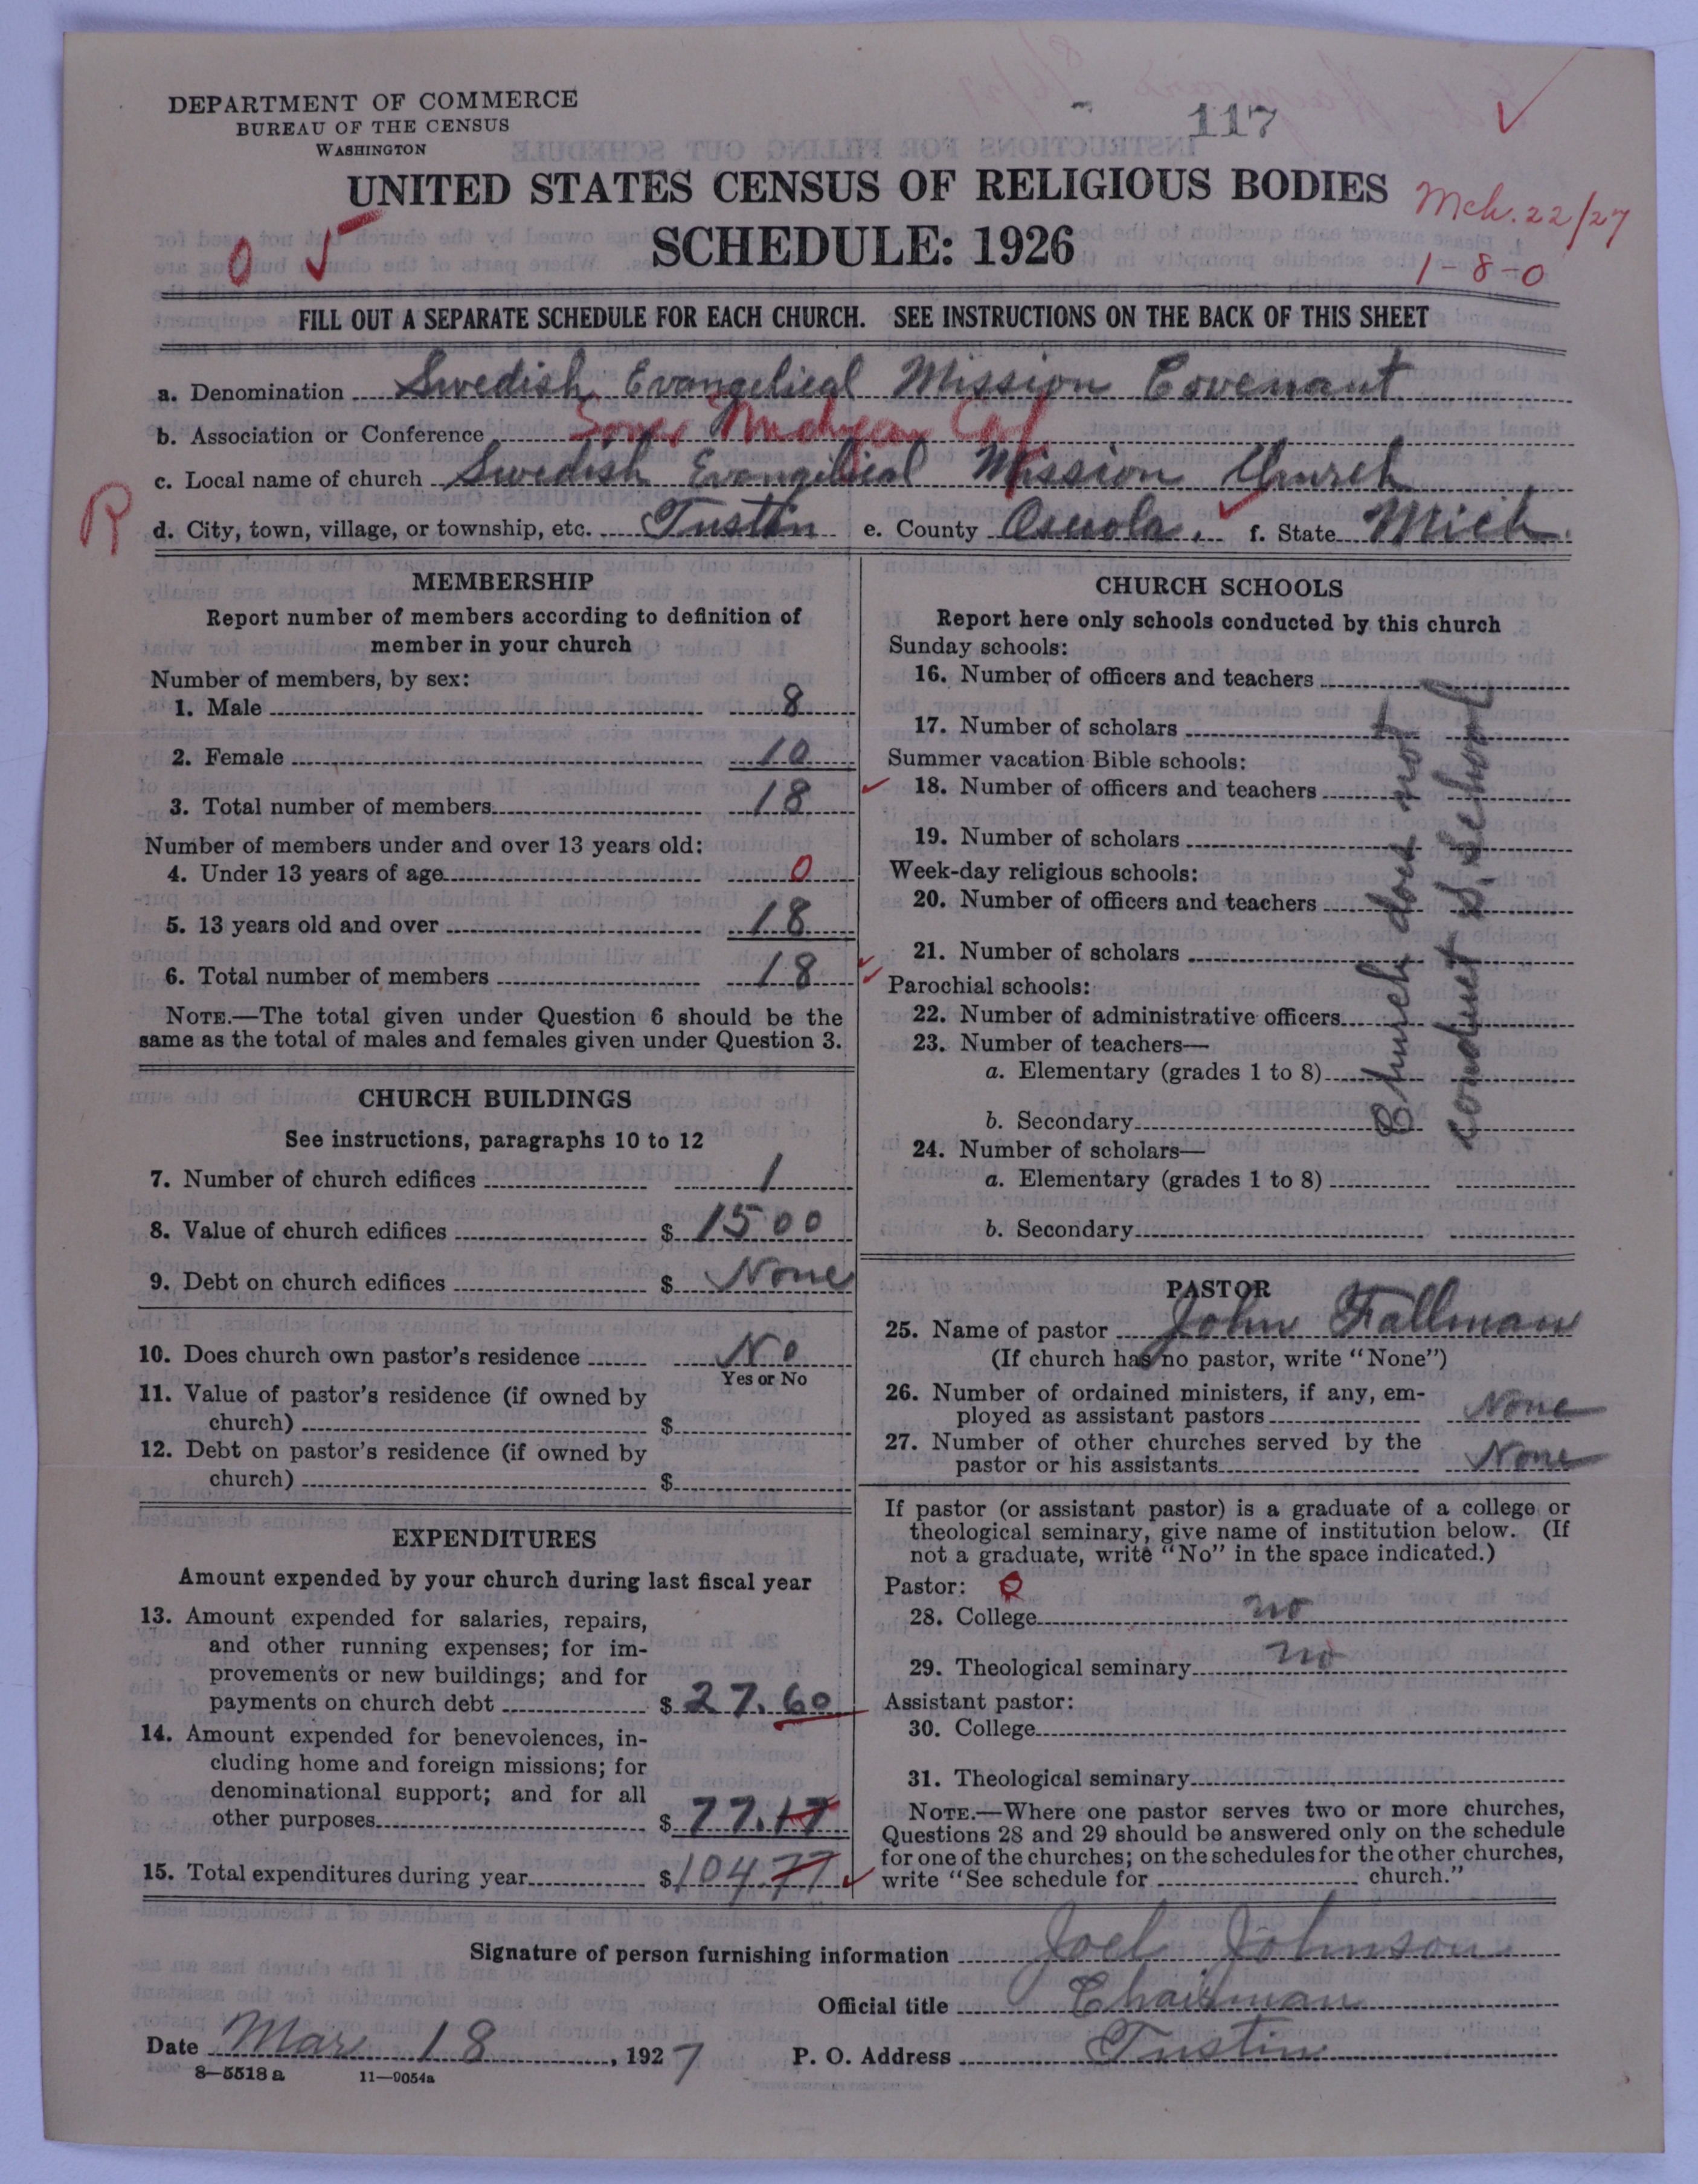 DEPARTMENT OF COMMERCE
BUREAU OF THE CENSUS
WASHINGTON
117
UNITED STATES CENSUS OF RELIGIOUS BODIES
Mch. 22/27
SCHEDULE: 1926
1-8-0
0 5
FILL OUT A SEPARATE SCHEDULE FOR EACH CHURCH. SEE INSTRUCTIONS ON THE BACK OF THIS SHEET
a. Denomination Swedish Evangelical Mission Covenant
b. Association or Conference Michigan
c. Local name of church Swedish Evangelical Mission Church
R
d. City, town, village, or township, etc. Tustin e. County Osceola. f. State Mich.
MEMBERSHIP
Report number of members according to definition of
member in your church
Number of members, by sex:
1. Male 8
2. Female 10
3. Total number of members 18
Number of members under and over 13 years old:
4. Under 13 years of age 0
5. 13 years old and over 18
6. Total number of members 18
NOTE.—The total given under Question 6 should be the
same as the total of males and females given under Question 3.
CHURCH BUILDINGS
See instructions, paragraphs 10 to 12
7. Number of church edifices 1
8. Value of church edifices $ 1500
9. Debt on church edifices $ None
10. Does church own pastor's residence No
Yes or No
11. Value of pastor's residence (if owned by
church) $
12. Debt on pastor's residence (if owned by
church) $
EXPENDITURES
Amount expended by your church during last fiscal year
13. Amount expended for salaries, repairs,
and other running expenses; for im-
provements or new buildings; and for
payments on church debt $ 27.60
14. Amount expended for benevolences, in-
cluding home and foreign missions; for
denominational support; and for all
other purposes $ 77.17
15. Total expenditures during year $ 104.77
CHURCH SCHOOLS
Report here only schools conducted by this church
Sunday schools:
16. Number of officers and teachers
17. Number of scholars
Summer vacation Bible schools:
18. Number of officers and teachers
19. Number of scholars
Week-day religious schools:
20. Number of officers and teachers
21. Number of scholars
Parochial schools:
22. Number of administrative officers
23. Number of teachers—
a. Elementary (grades 1 to 8)
b. Secondary
24. Number of scholars—
a. Elementary (grades 1 to 8)
b. Secondary
Church does not
conduct S. School
PASTOR
25. Name of pastor John Fallman
(If church has no pastor, write "None")
26. Number of ordained ministers, if any, em-
ployed as assistant pastors None
27. Number of other churches served by the
pastor or his assistants None
If pastor (or assistant pastor) is a graduate of a college or
theological seminary, give name of institution below. (If
not a graduate, write "No" in the space indicated.)
Pastor: R
28. College no
29. Theological seminary no
Assistant pastor:
30. College
31. Theological seminary
NOTE.—Where one pastor serves two or more churches,
Questions 28 and 29 should be answered only on the schedule
for one of the churches; on the schedules for the other churches,
write "See schedule for church."
Signature of person furnishing information Joel Johnson
Official title Chairman
Date Mar 18, 1927 P. O. Address Tustin
8—5518 a 11—9054a